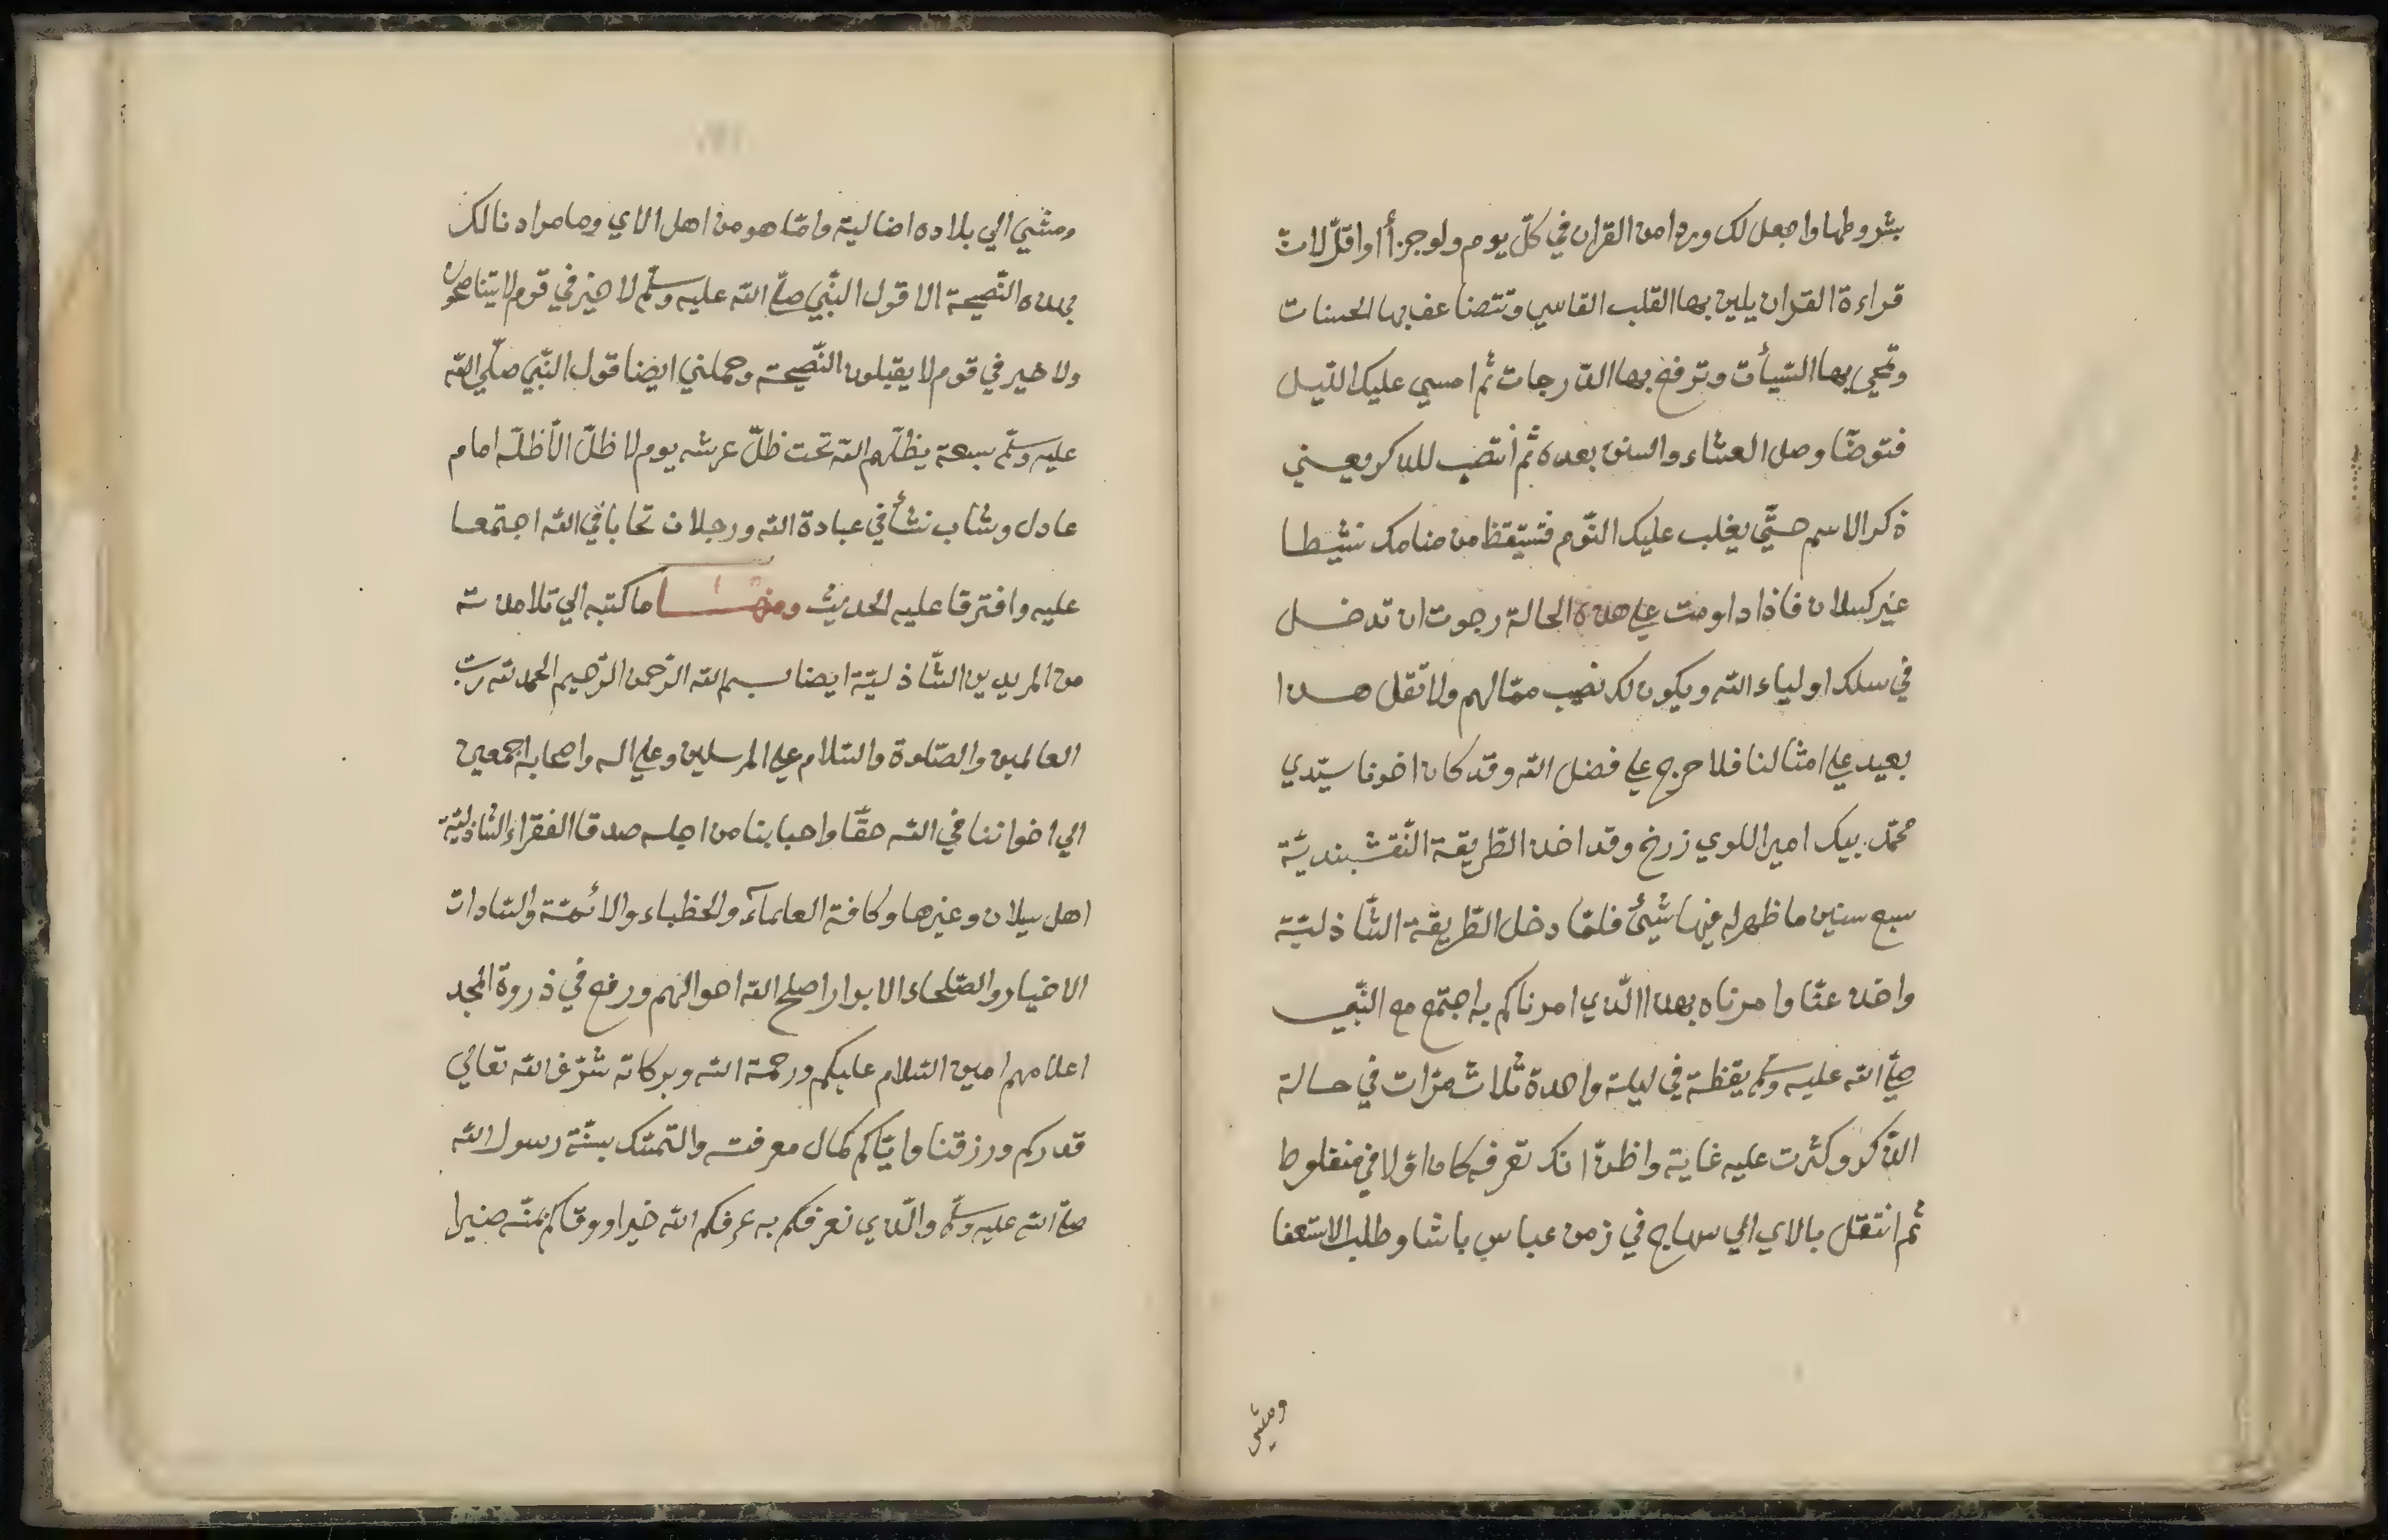 بشروطها واجعل لك وردا من القران في كلّ يوم ولو جزأ أو اقلّ لان
قراءة القران يلين بها القلب القاسي وتتضاعف بها الحسنات
وتمحى بها السّيأت وترفع بها الدّرجات ثمّ امسي عليك اللّيل
فتوضّا وصل العشاء والسنن بعده ثمّ أنتصب للذكر يعني
ذكر الاسم حتّي يغلب عليك النّوم فتستيقظ من منامك نشيطا
غير كسلان فاذا داومت علي هذه الحالة رجوت ان تدخل
في سلك اولياء الله ويكون لك نصيب ممّا لهم ولا تقل هذا
بعيد علي امثالنا فلا حرج علي فضل الله وقد كان اخونا سيّدي
محمّد بيك امير اللوي زرخ وقد اخذ الطّريقة النّقشبنديّة
سبع سنين ما ظهر له فيها شيئ فلمّا دخل الطّريقة الشّاذليّة
واخذ عنّا وامرناه بهذا الّذي امرناكم به اجتمع مع النّبي
صلّي الله عليه وسلّم يقظة في ليلة واحدة ثلاث مرّات في حالة
الذّكر وكثرت عليه غاية واظنّ انك تعرفه كان اوّلا في منفلوط
ثم انتقل بالاي الي سهاج في زمن عباس باشا وطلب الاستعفا
ومشي
ومشي الي بلاده اضالية وامّا هو من اهل الاي وما مرادنا لك
بهذه النّصيحة الا قول النّبي صلّي الله عليه وسلّم لا خير في قوم لا يتناصحون
ولا خير في قوم لا يقبلون النّصيحة وحملني ايضا قول النّبي صلّي الله
عليه وسلّم سبعة يظلّهم الله تحت ظلّ عرشه يوم لا ظلّ الّا ظلّه امام
عادل وشاب نشأ في عبادة الله ورجلان تحابا في الله اجتمعا
عليه وافترقا عليه الحديث ومنها ما كتبه الي تلامذته
من المريدين الشّاذليّة ايضا بسم الله الرّحمن الرّحيم الحمد لله ربّ
العالمين والصّلوة والسّلام علي المرسلين وعلي اله واصحابه اجمعين
الي اخواننا في الله حقّا واحبابنا من اجله صدقا الفقراء الشّاذليّة
اهل سيلان وغيرها وكافة العلمآء والخطباء والائمّة والسّادات
الاخيار والصّلحاء الابرار اصلح الله احوالهم ورفع في ذروة المجد
اعلامهم امين السّلام عليكم ورحمة الله وبركاته شرّف الله تعالي
قدركم ورزقنا وايّاكم كمال معرفته والتّمسّك بسنّة رسول الله
صلّي الله عليه وسلّم والّذي نعرفكم به عرفكم الله خيرا ووقاكم بمنّه ضيرا